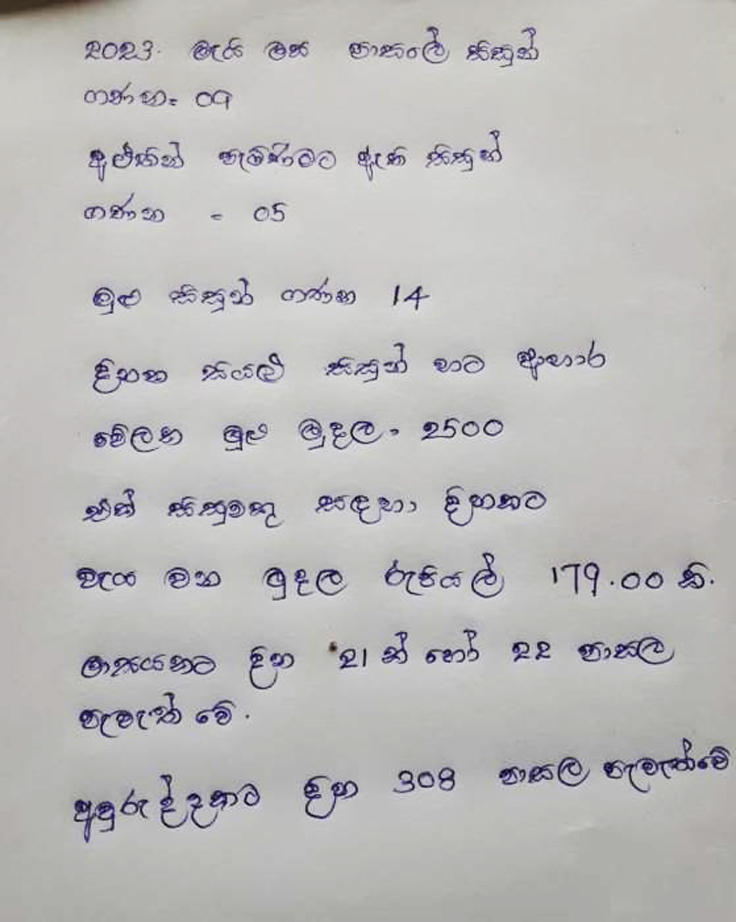 2023. මැයි මස පාසලේ සිසුන්
ගණන= 09
අළුතින් පැමිණීමට ඇති සිසුන්
ගණන = 05
මුළු සිසුන් ගණන 14
දිනක සියළු සිසුන් හට ආහාර
වේලක මුළු මුදල. 2500
එක් සිසුවකු සඳහා දිනකට
වැය වන මුදල රුපියල් 179.00 කි.
මාසයකට දින 21 ක් හෝ 22 පාසල
පැවැත් වේ.
අවුරුද්දකට දින 308 පාසල පැවැත්වේ